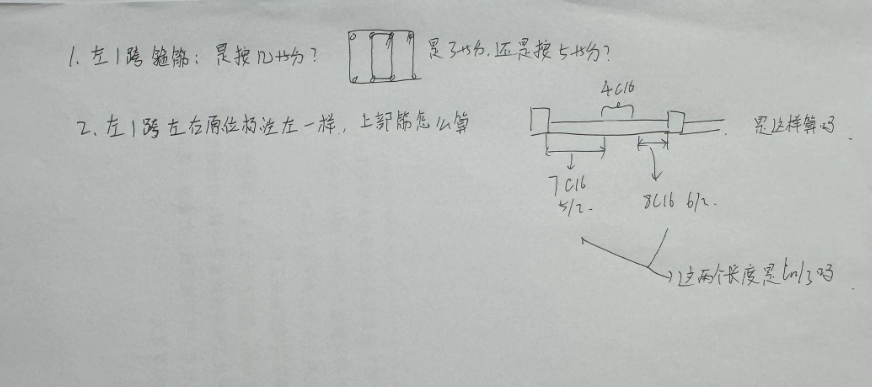 1. 左1跨箍筋：是按几十分？ 是3十分.还是按5十分？
2、左1跨左右原位标注左一样，上部筋怎么算
4C16
是这样算吗
7C16
5/2.
8C16 6/2.
这两个长度是ln/3吗